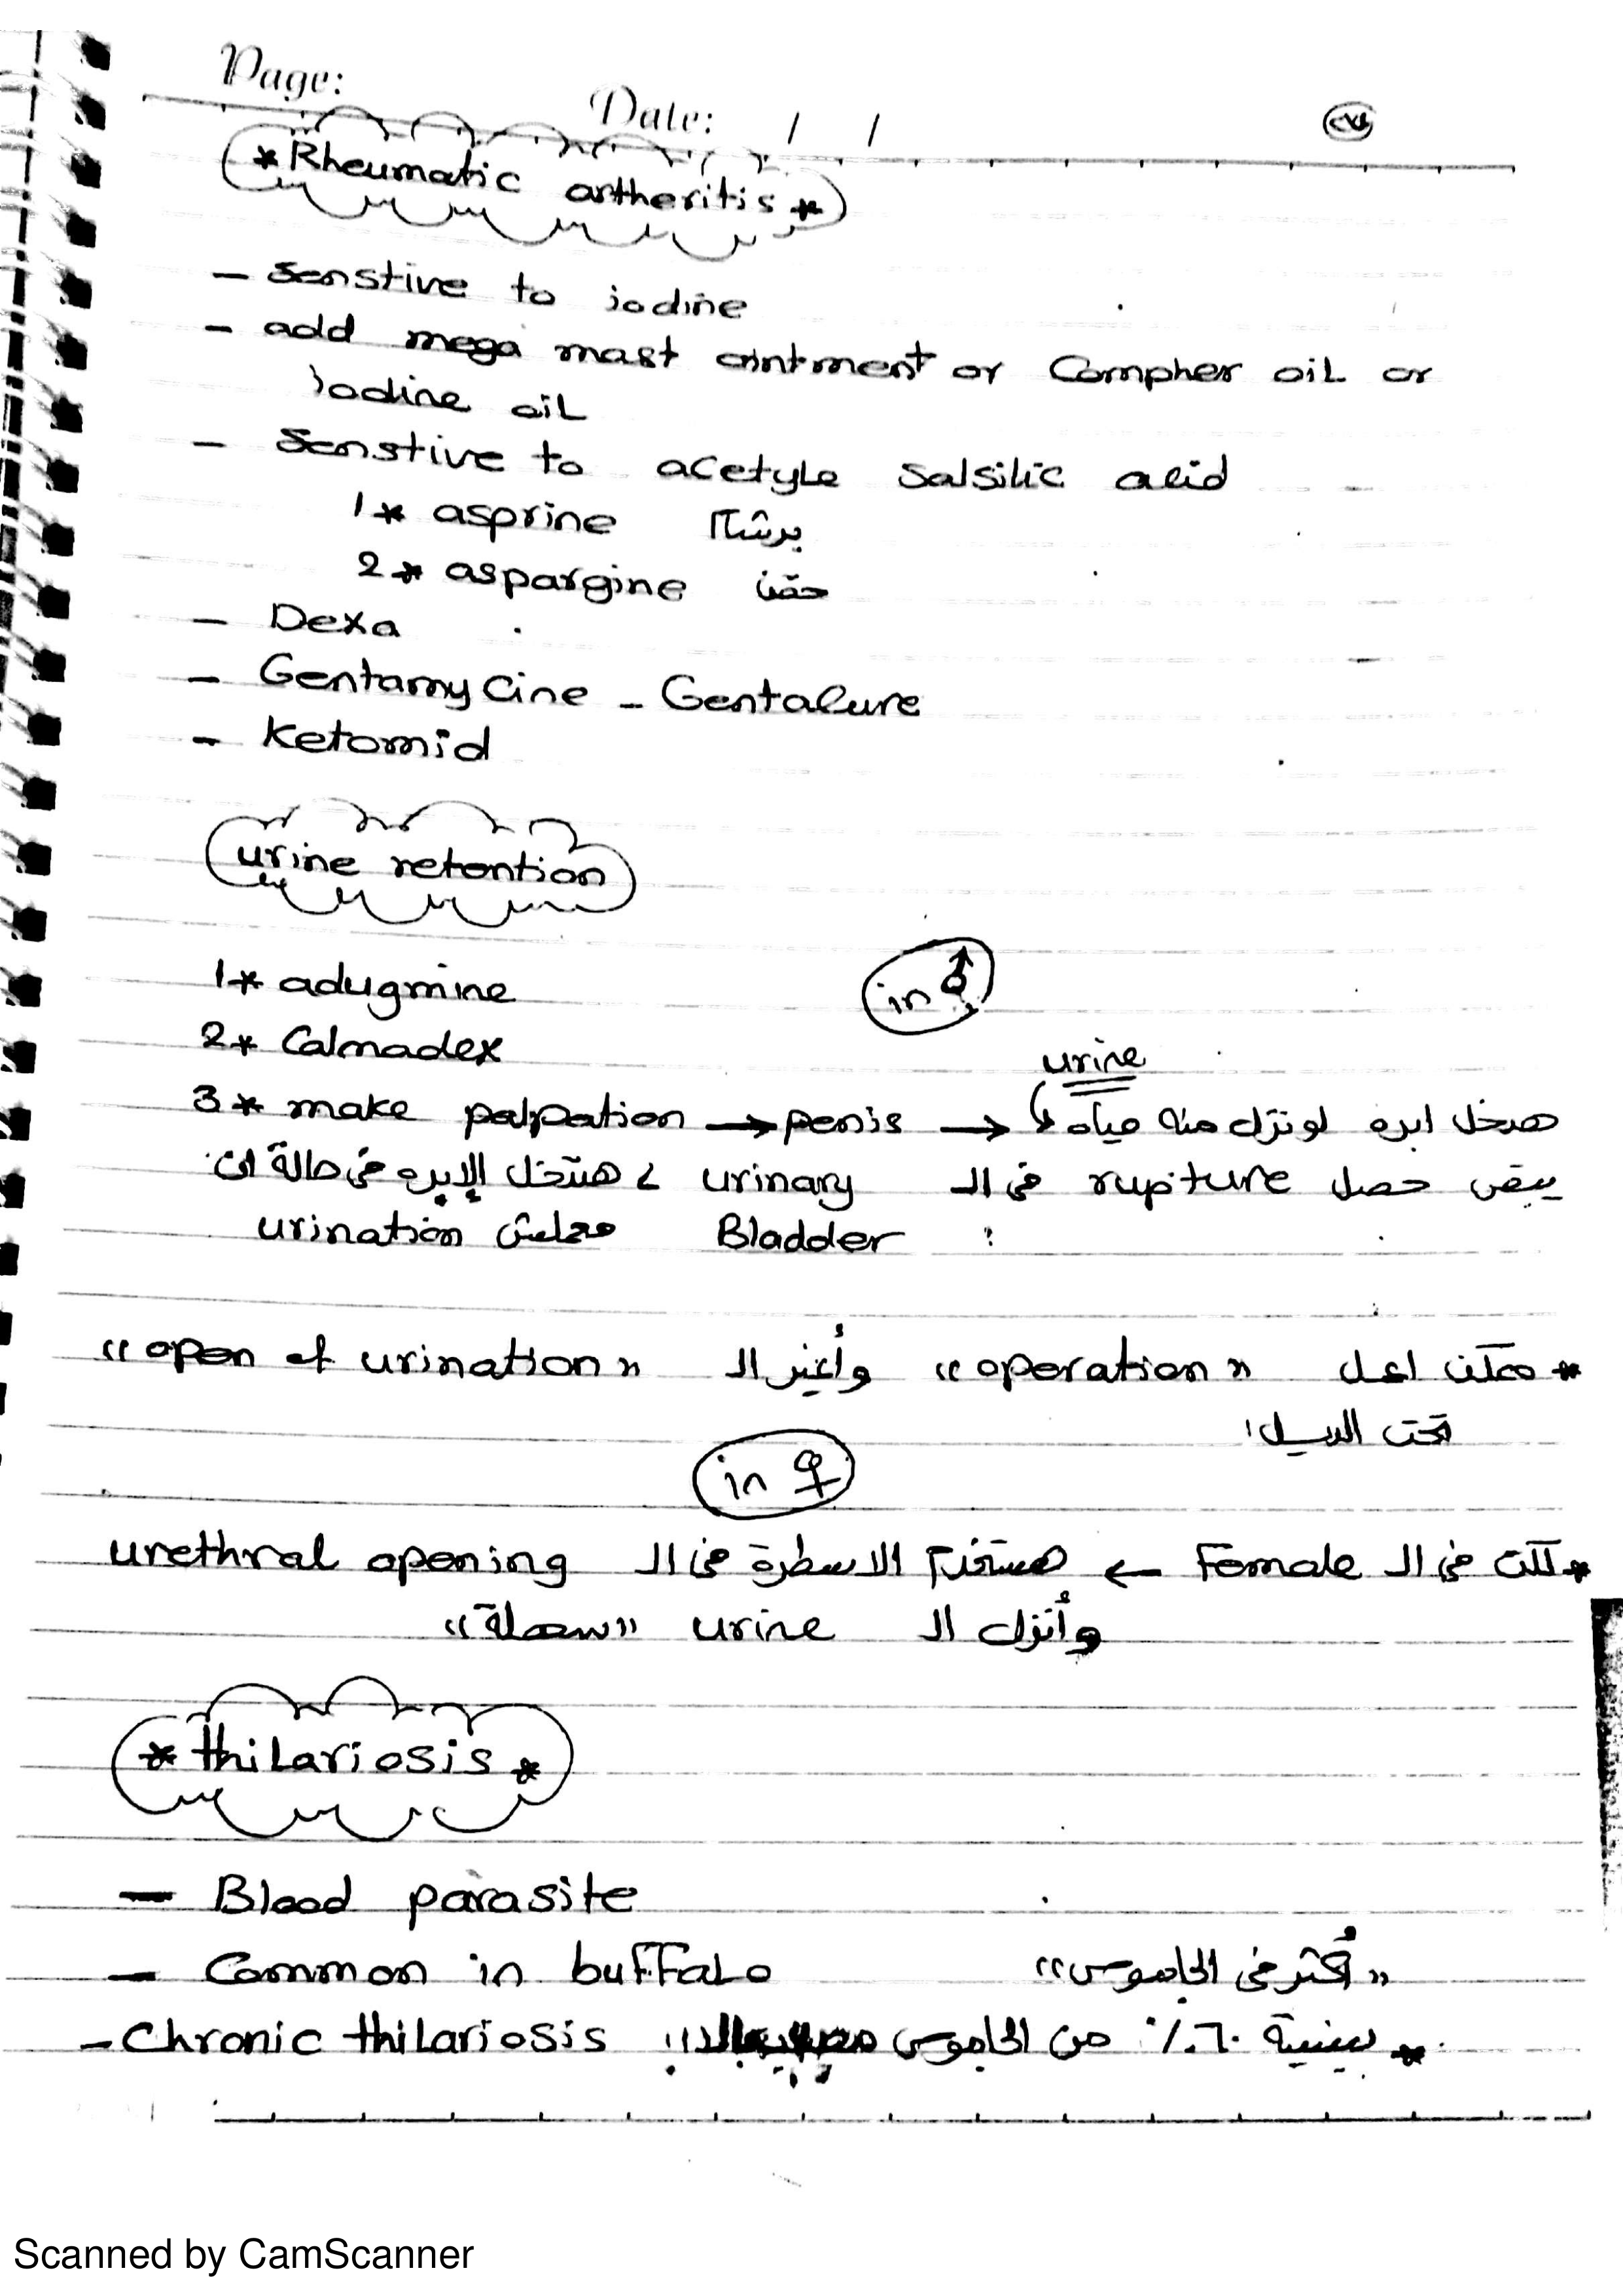 Page:
Date: / /
* Rheumatic artheritis *
- Senstive to iodine
- add mega mast ointment or Compher oil or
iodine oil
- Senstive to acetyle salsilic acid
1* asprine برشام
2* aspargine حقن
- Dexa
- Gentamycine - Gentalure
- Ketomid
urine retention
1* adugmine
in ♂
2* Calmadex
urine
3* make palpation → penis → هدخل ابره لو نزل منه مياه
يبقى حصل rupture فى الـ urinary هتدخل الإبره فى حالة ان
Bladder معملش urination
* ممكن اعمل «operation» وأغير الـ «open of urination»
تحت الديل
in ♀
* لكن فى الـ Female ← هستخدم الاسطرة فى الـ urethral opening
وأنزل الـ urine «سهلة»
* thilariosis *
- Blood parasite
- Common in buffalo «أكتر فى الجاموس»
- Chronic thilariosis * بنسبة ٦٠٪ من الجاموس
Scanned by CamScanner